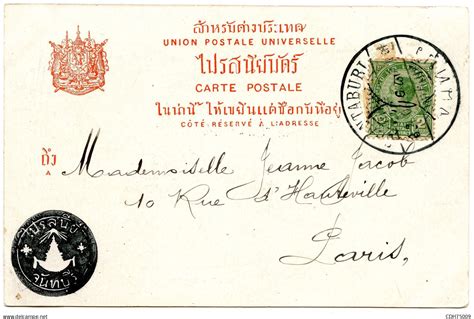 สำหรับต่างประเทศ
UNION POSTALE UNIVERSELLE
ไปรสนียบัตร์
CARTE POSTALE
ในน่านี้ ให้เขียนแต่ชื่อกับที่อยู่
CÔTÉ RÉSERVÉ A L'ADRESSE
ถึง
A
Mademoiselle Jeanne Jacob
10 Rue d'Hauteville
Paris.
ไปรสนีย์
จันทบุรี
CHANTABURI
delcampe.net
CDHTS009